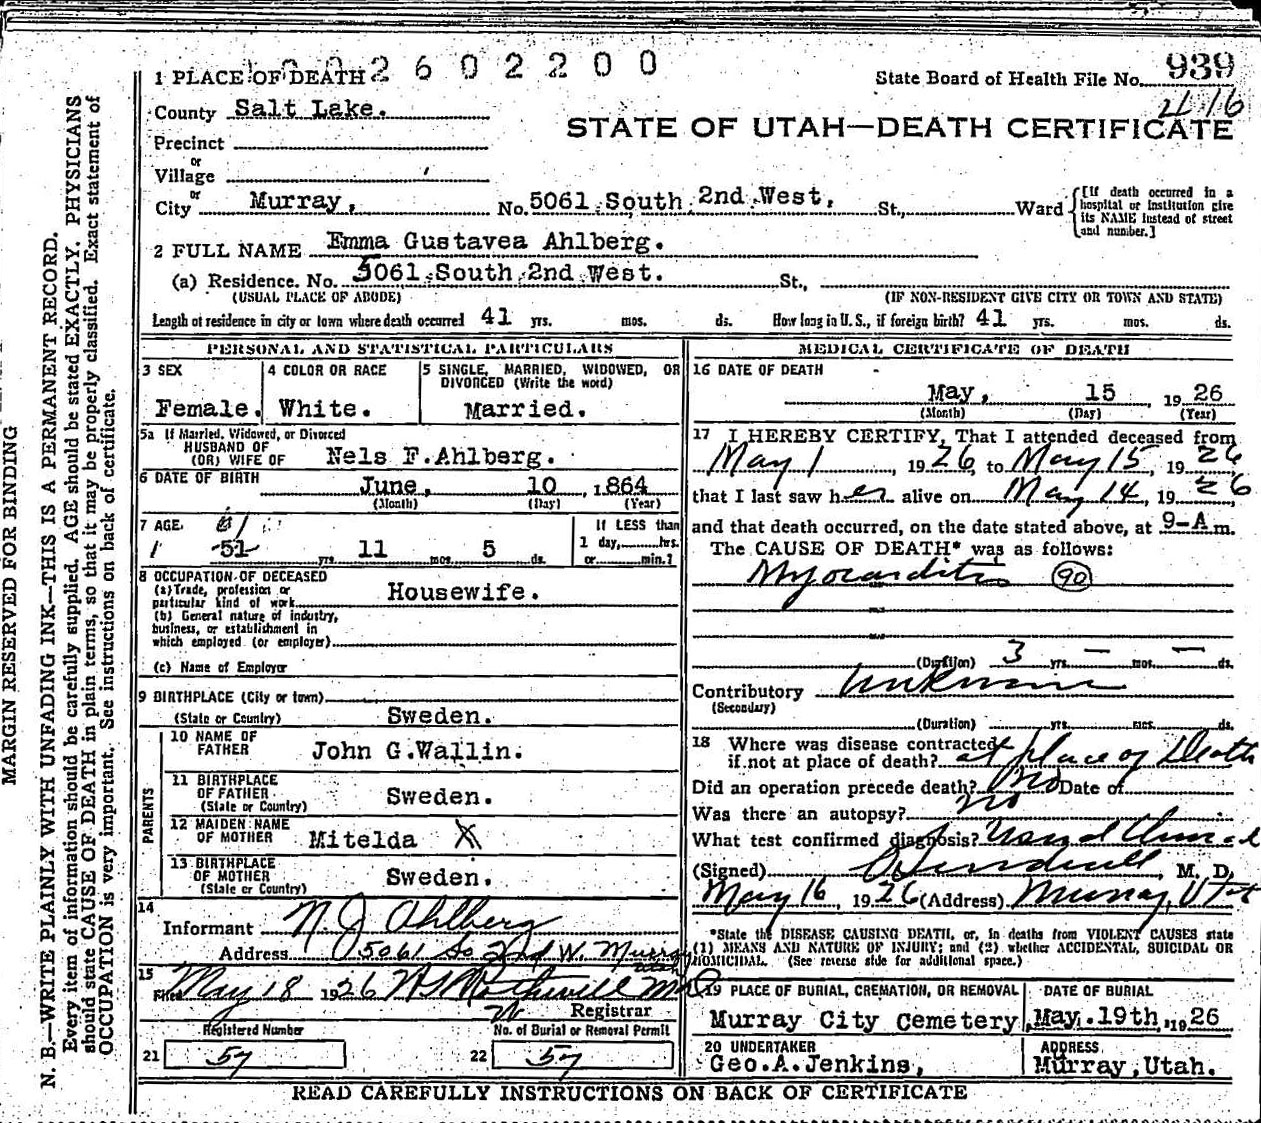 1 PLACE OF DEATH 2 6 0 2 2 0 0
State Board of Health File No. 939
County Salt Lake.
STATE OF UTAH—DEATH CERTIFICATE
Precinct
or
Village
or
City Murray, No. 5061 South 2nd West, St., Ward [If death occurred in a hospital or institution give its NAME instead of street and number.]
2 FULL NAME Emma Gustavea Ahlberg.
(a) Residence. No. 5061 South 2nd West. St.,
(USUAL PLACE OF ABODE) (IF NON-RESIDENT GIVE CITY OR TOWN AND STATE)
Length of residence in city or town where death occurred 41 yrs. mos. ds. How long in U. S., if foreign birth? 41 yrs. mos. ds.
PERSONAL AND STATISTICAL PARTICULARS
3 SEX
Female.
4 COLOR OR RACE
White.
5 SINGLE, MARRIED, WIDOWED, OR
DIVORCED (Write the word)
Married.
5a If Married, Widowed, or Divorced
HUSBAND OF
(OR) WIFE OF Nels F.Ahlberg.
6 DATE OF BIRTH June, 10 , 1864
(Month) (Day) (Year)
7 AGE 61
51 yrs. 11 mos. 5 ds.
If LESS than
1 day,......hrs.
or......min.?
8 OCCUPATION OF DECEASED
(a) Trade, profession or
particular kind of work Housewife.
(b) General nature of industry,
business, or establishment in
which employed (or employer)
(c) Name of Employer
9 BIRTHPLACE (City or town)
(State or Country) Sweden.
PARENTS
10 NAME OF
FATHER John G.Wallin.
11 BIRTHPLACE
OF FATHER
(State or Country) Sweden.
12 MAIDEN NAME
OF MOTHER Mitelda X
13 BIRTHPLACE
OF MOTHER
(State or Country) Sweden.
14
Informant N. J Ahlberg
Address 5061 So 2nd W. Murray
Utah
15
Filed May 18 1926
Registrar
Registered Number
21 57
No. of Burial or Removal Permit
22 57
MEDICAL CERTIFICATE OF DEATH
16 DATE OF DEATH
May, 15 19 26
(Month) (Day) (Year)
17 I HEREBY CERTIFY, That I attended deceased from
May 1, 1926, to May 15, 1926
that I last saw her alive on May 14, 1926
and that death occurred, on the date stated above, at 9-A m.
The CAUSE OF DEATH* was as follows:
Myocarditis 90
(Duration) 3 yrs. — mos. — ds.
Contributory Unknown
(Secondary)
(Duration) yrs. mos. ds.
18 Where was disease contracted
if not at place of death? at place of Death
Did an operation precede death? no Date of
Was there an autopsy? no
What test confirmed diagnosis?
(Signed) , M. D.
May 16, 1926 (Address) Murray, Utah
*State the DISEASE CAUSING DEATH, or, in deaths from VIOLENT CAUSES state
(1) MEANS AND NATURE OF INJURY; and (2) whether ACCIDENTAL, SUICIDAL OR
HOMICIDAL. (See reverse side for additional space.)
19 PLACE OF BURIAL, CREMATION, OR REMOVAL
Murray City Cemetery,
DATE OF BURIAL
May. 19th, 1926
20 UNDERTAKER
Geo.A.Jenkins,
ADDRESS
Murray, Utah.
READ CAREFULLY INSTRUCTIONS ON BACK OF CERTIFICATE
MARGIN RESERVED FOR BINDING
N. B.—WRITE PLAINLY WITH UNFADING INK—THIS IS A PERMANENT RECORD.
Every item of information should be carefully supplied. AGE should be stated EXACTLY. PHYSICIANS
should state CAUSE OF DEATH in plain terms, so that it may be properly classified. Exact statement of
OCCUPATION is very important. See instructions on back of certificate.